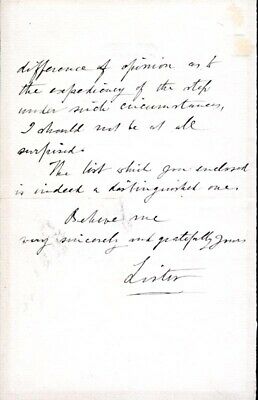 difference of opinion as to
the expediency of the step
under such circumstances,
I should not be at all
surprised.
The list which you enclosed
is indeed a distinguished one.
Believe me
very sincerely and gratefully yours
Lister